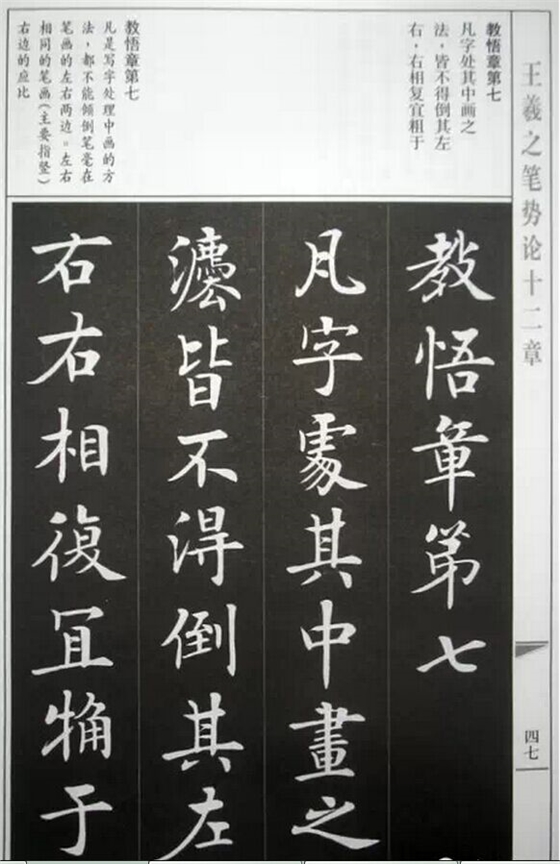 王羲之笔势论十二章
四七
教悟章第七
凡字处其中画之
法，皆不得倒其左
右，右相复宜粗于
教悟章第七
凡是写字处理中画的方
法，都不能倾倒笔毫在
笔画的左右两边。左右
相同的笔画(主要指竖)
右边的应比
教悟章第七
凡字處其中畫之
灋皆不得倒其左
右右相復冝觕于